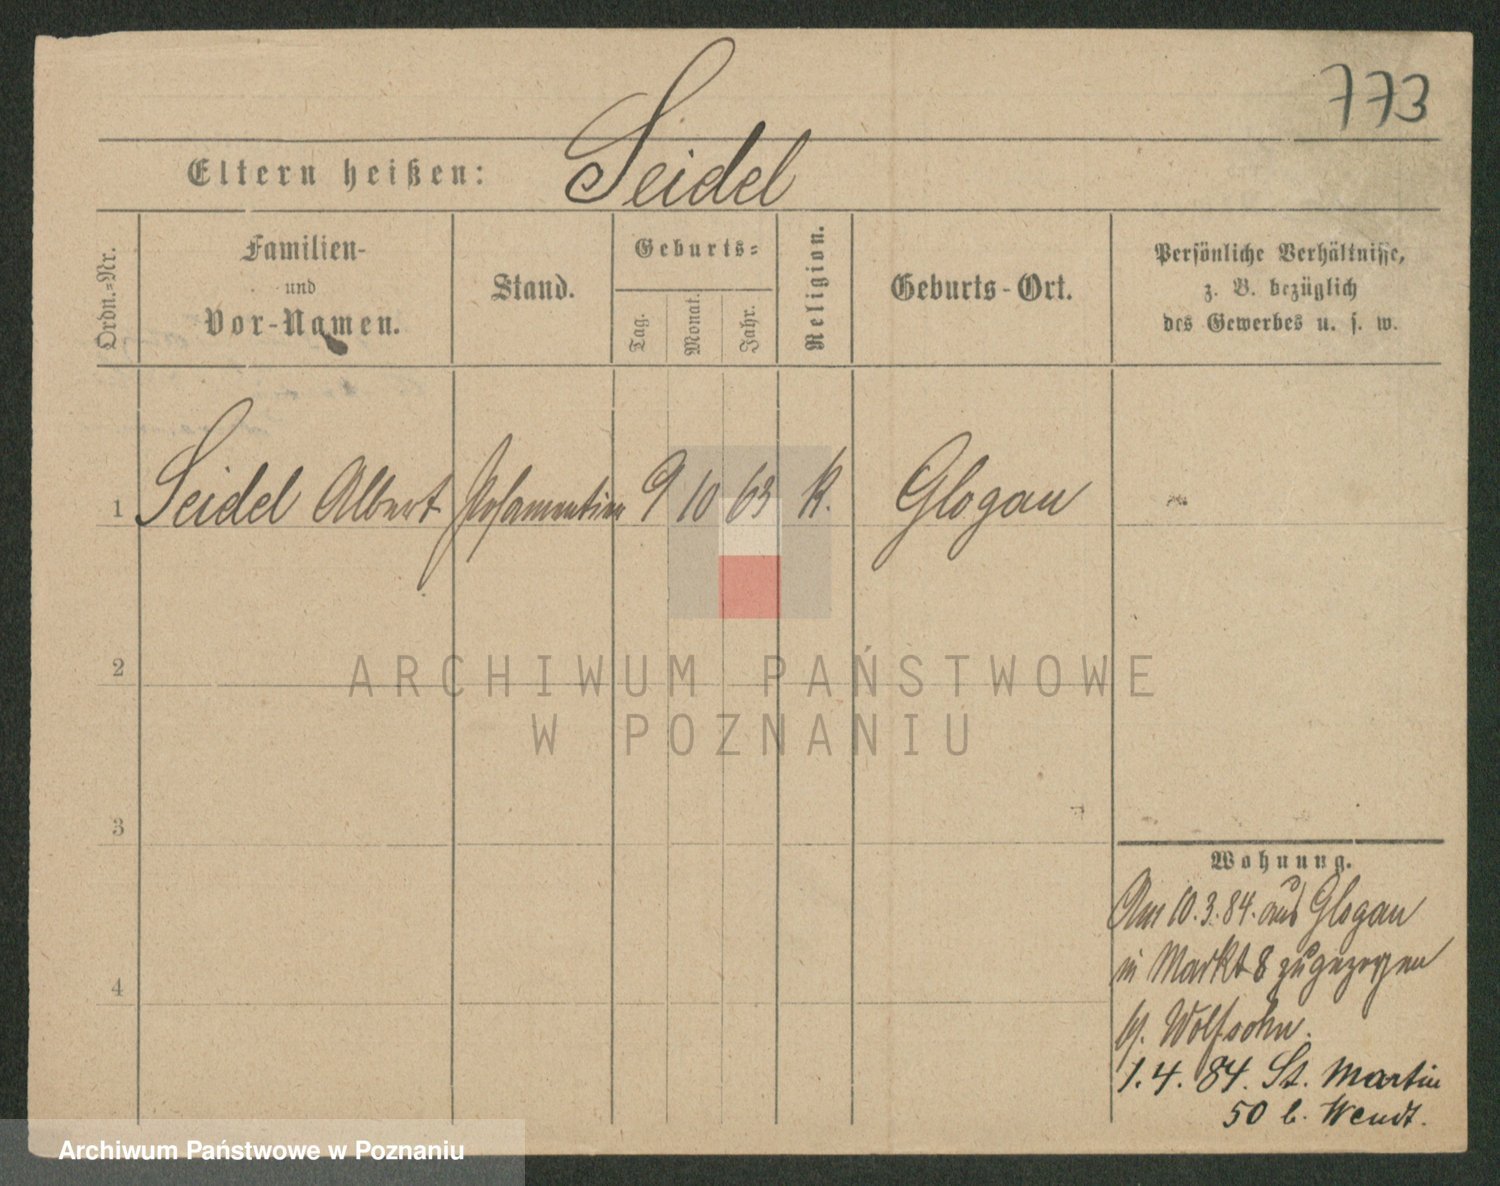 773
Eltern heißen: Seidel
Ordn.=Nr.
Familien-
und
Vor-Namen.
Stand.
Geburts=
Tag.
Monat.
Jahr.
Religion.
Geburts-Ort.
Persönliche Verhältnisse,
z. B. bezüglich
des Gewerbes u. s. w.
1 Seidel Albert Posamentier 9 10 63 K. Glogau
2
3
4
Wohnung.
Am 10.3.84. aus Glogau
in Markt 8 zugezogen
b. Wolfsohn.
1.4.84. St. Martin
50 b. Wendt.
ARCHIWUM PAŃSTWOWE
W POZNANIU
Archiwum Państwowe w Poznaniu